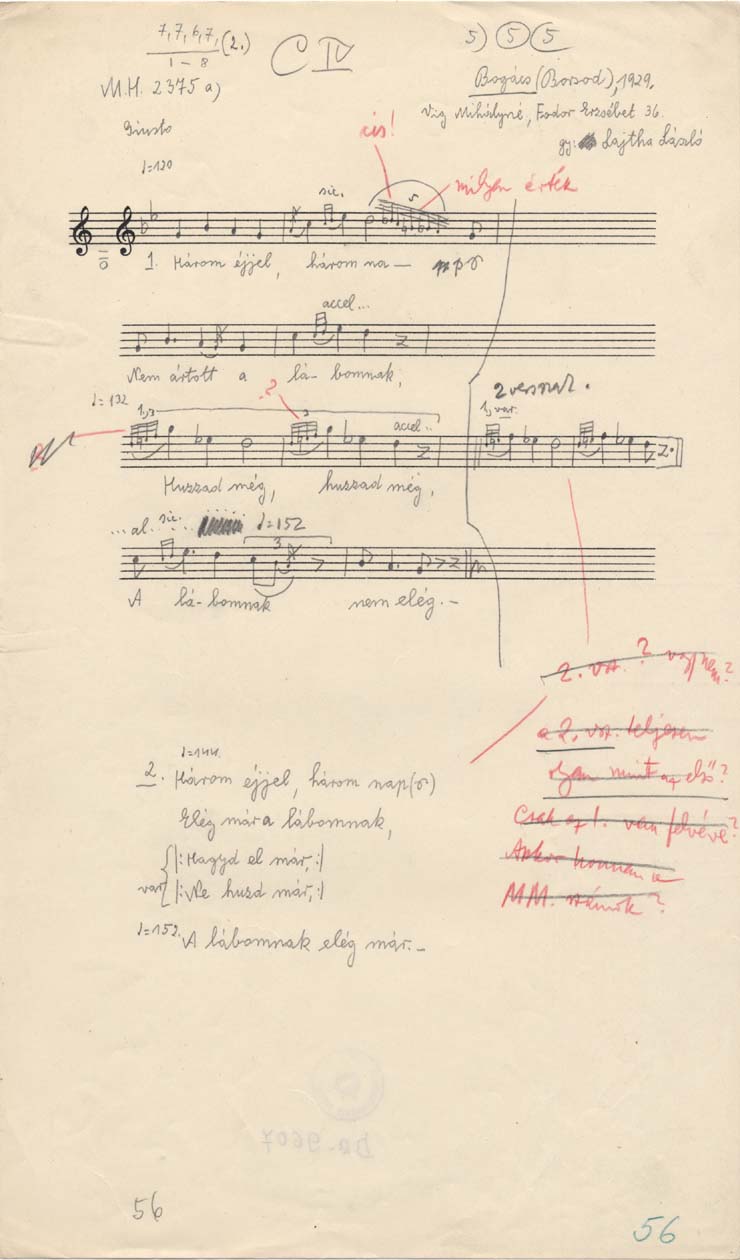 7, 7, 6, 7, (2.)
1 - 8
C IV
5) 5 5
M.H. 2375 a)
Bogács (Borsod), 1929.
Víg Mihályné, Fodor Erzsébet 36.
gy: Lajtha László
Giusto
♩=120
cis!
milyen érték
sic.
5
1. Három éjjel, három na-
accel...
Nem ártott a lá-bomnak,
♩=132
?
2 versszak.
1, var.
3
accel...
Huzzad még, huzzad még,
...al. sic.
♩=152
3
A lá-bomnak nem elég.-
2. vsz. ? vagy nem?
a 2. vsz. teljesen
olyan mint az első?
Csak az 1. van felvéve?
Akkor honnan a
MM. számok?
♩=144.
2. Három éjjel, három nap(σ)
Elég már a lábomnak,
var |: Hagyd el már, :|
|: Ne huzd már, :|
♩=152. A lábomnak elég már.-
56
56